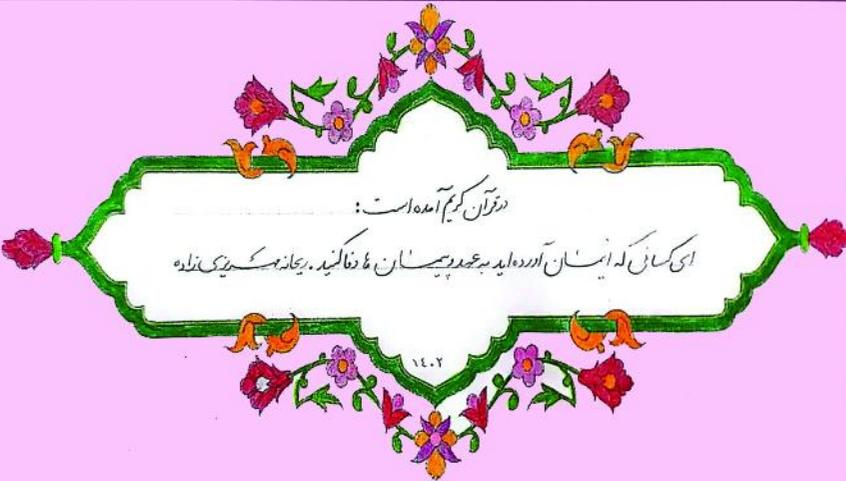 در قرآن کریم آمده است:
ای کسانی که ایمان آورده اید به عهد و پیمان ها وفا کنید. ریحانه
۱۴۰۲